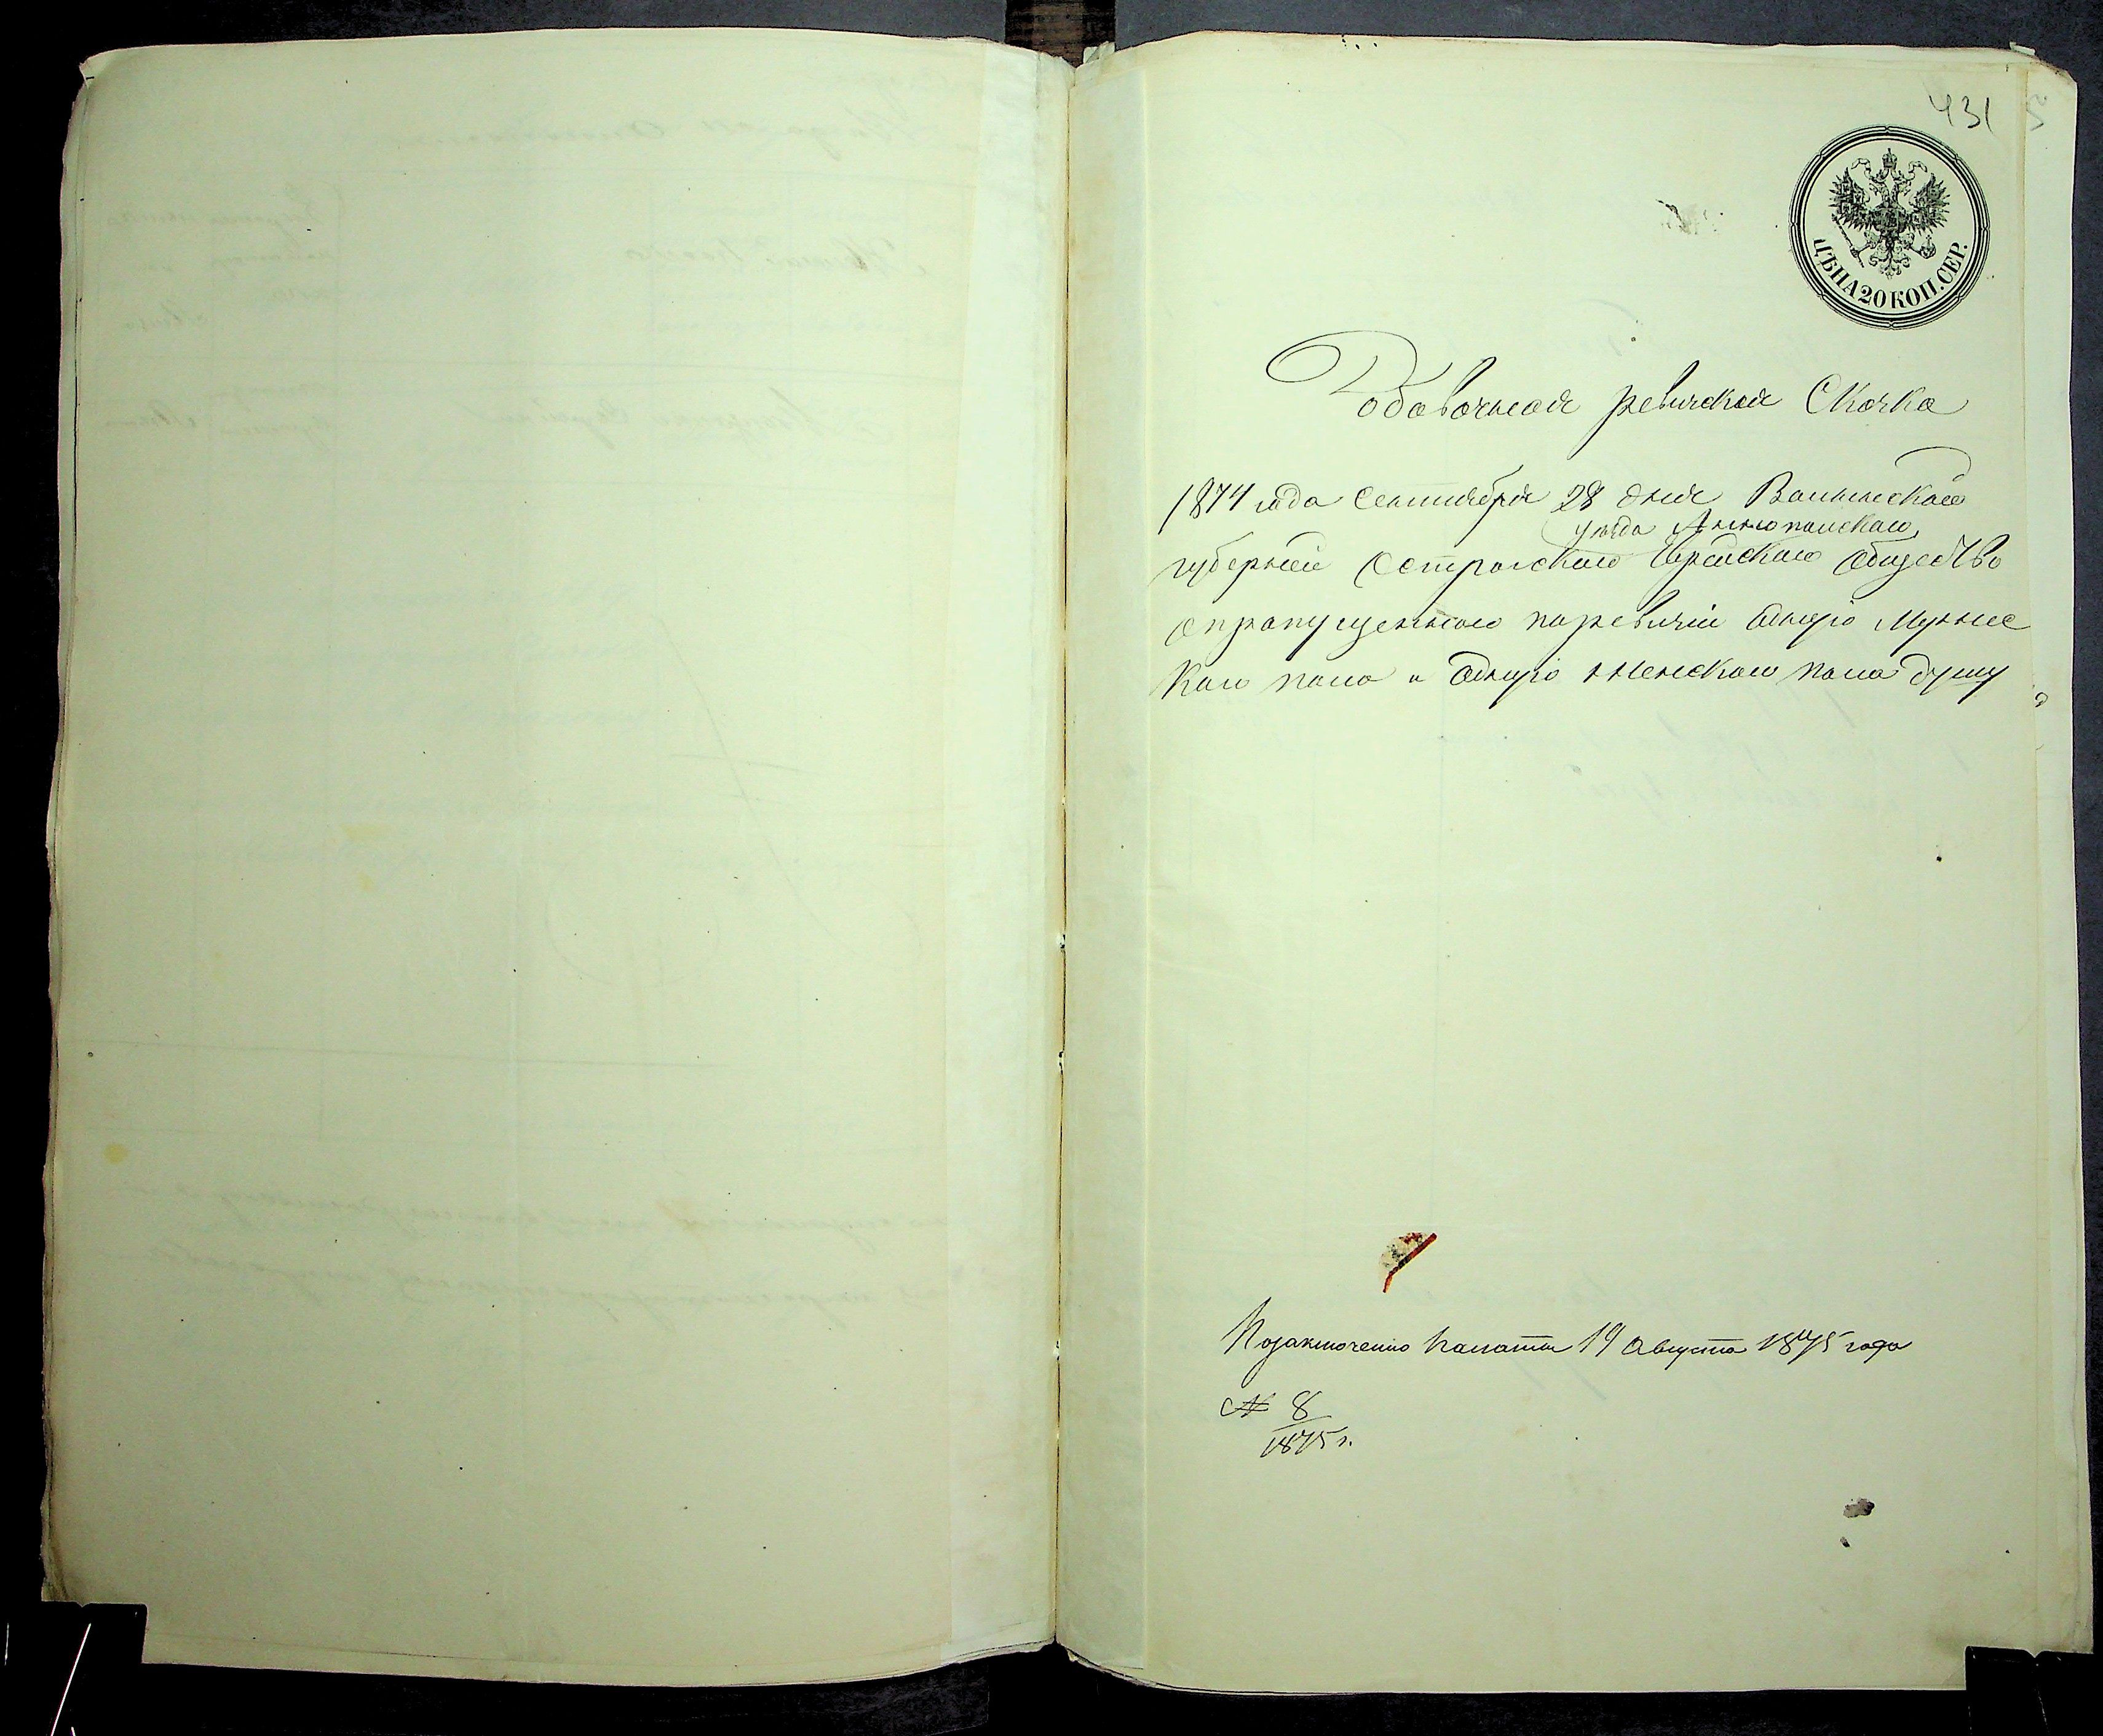 431
ЦѢНА 20 КОП. СЕР.
Добавочная ревизская Скаска
1874 года Сентября 28 дня Волынской
уѣзда Аннопольскаго
губерніи Острожскаго Еврейскаго Общества
о пропущенном по ревизіи одну Мужес
Каго пола и одну женскаго пола душу
По заключенію Палаты 19 Августа 1875 года
№ 8
1875 г.